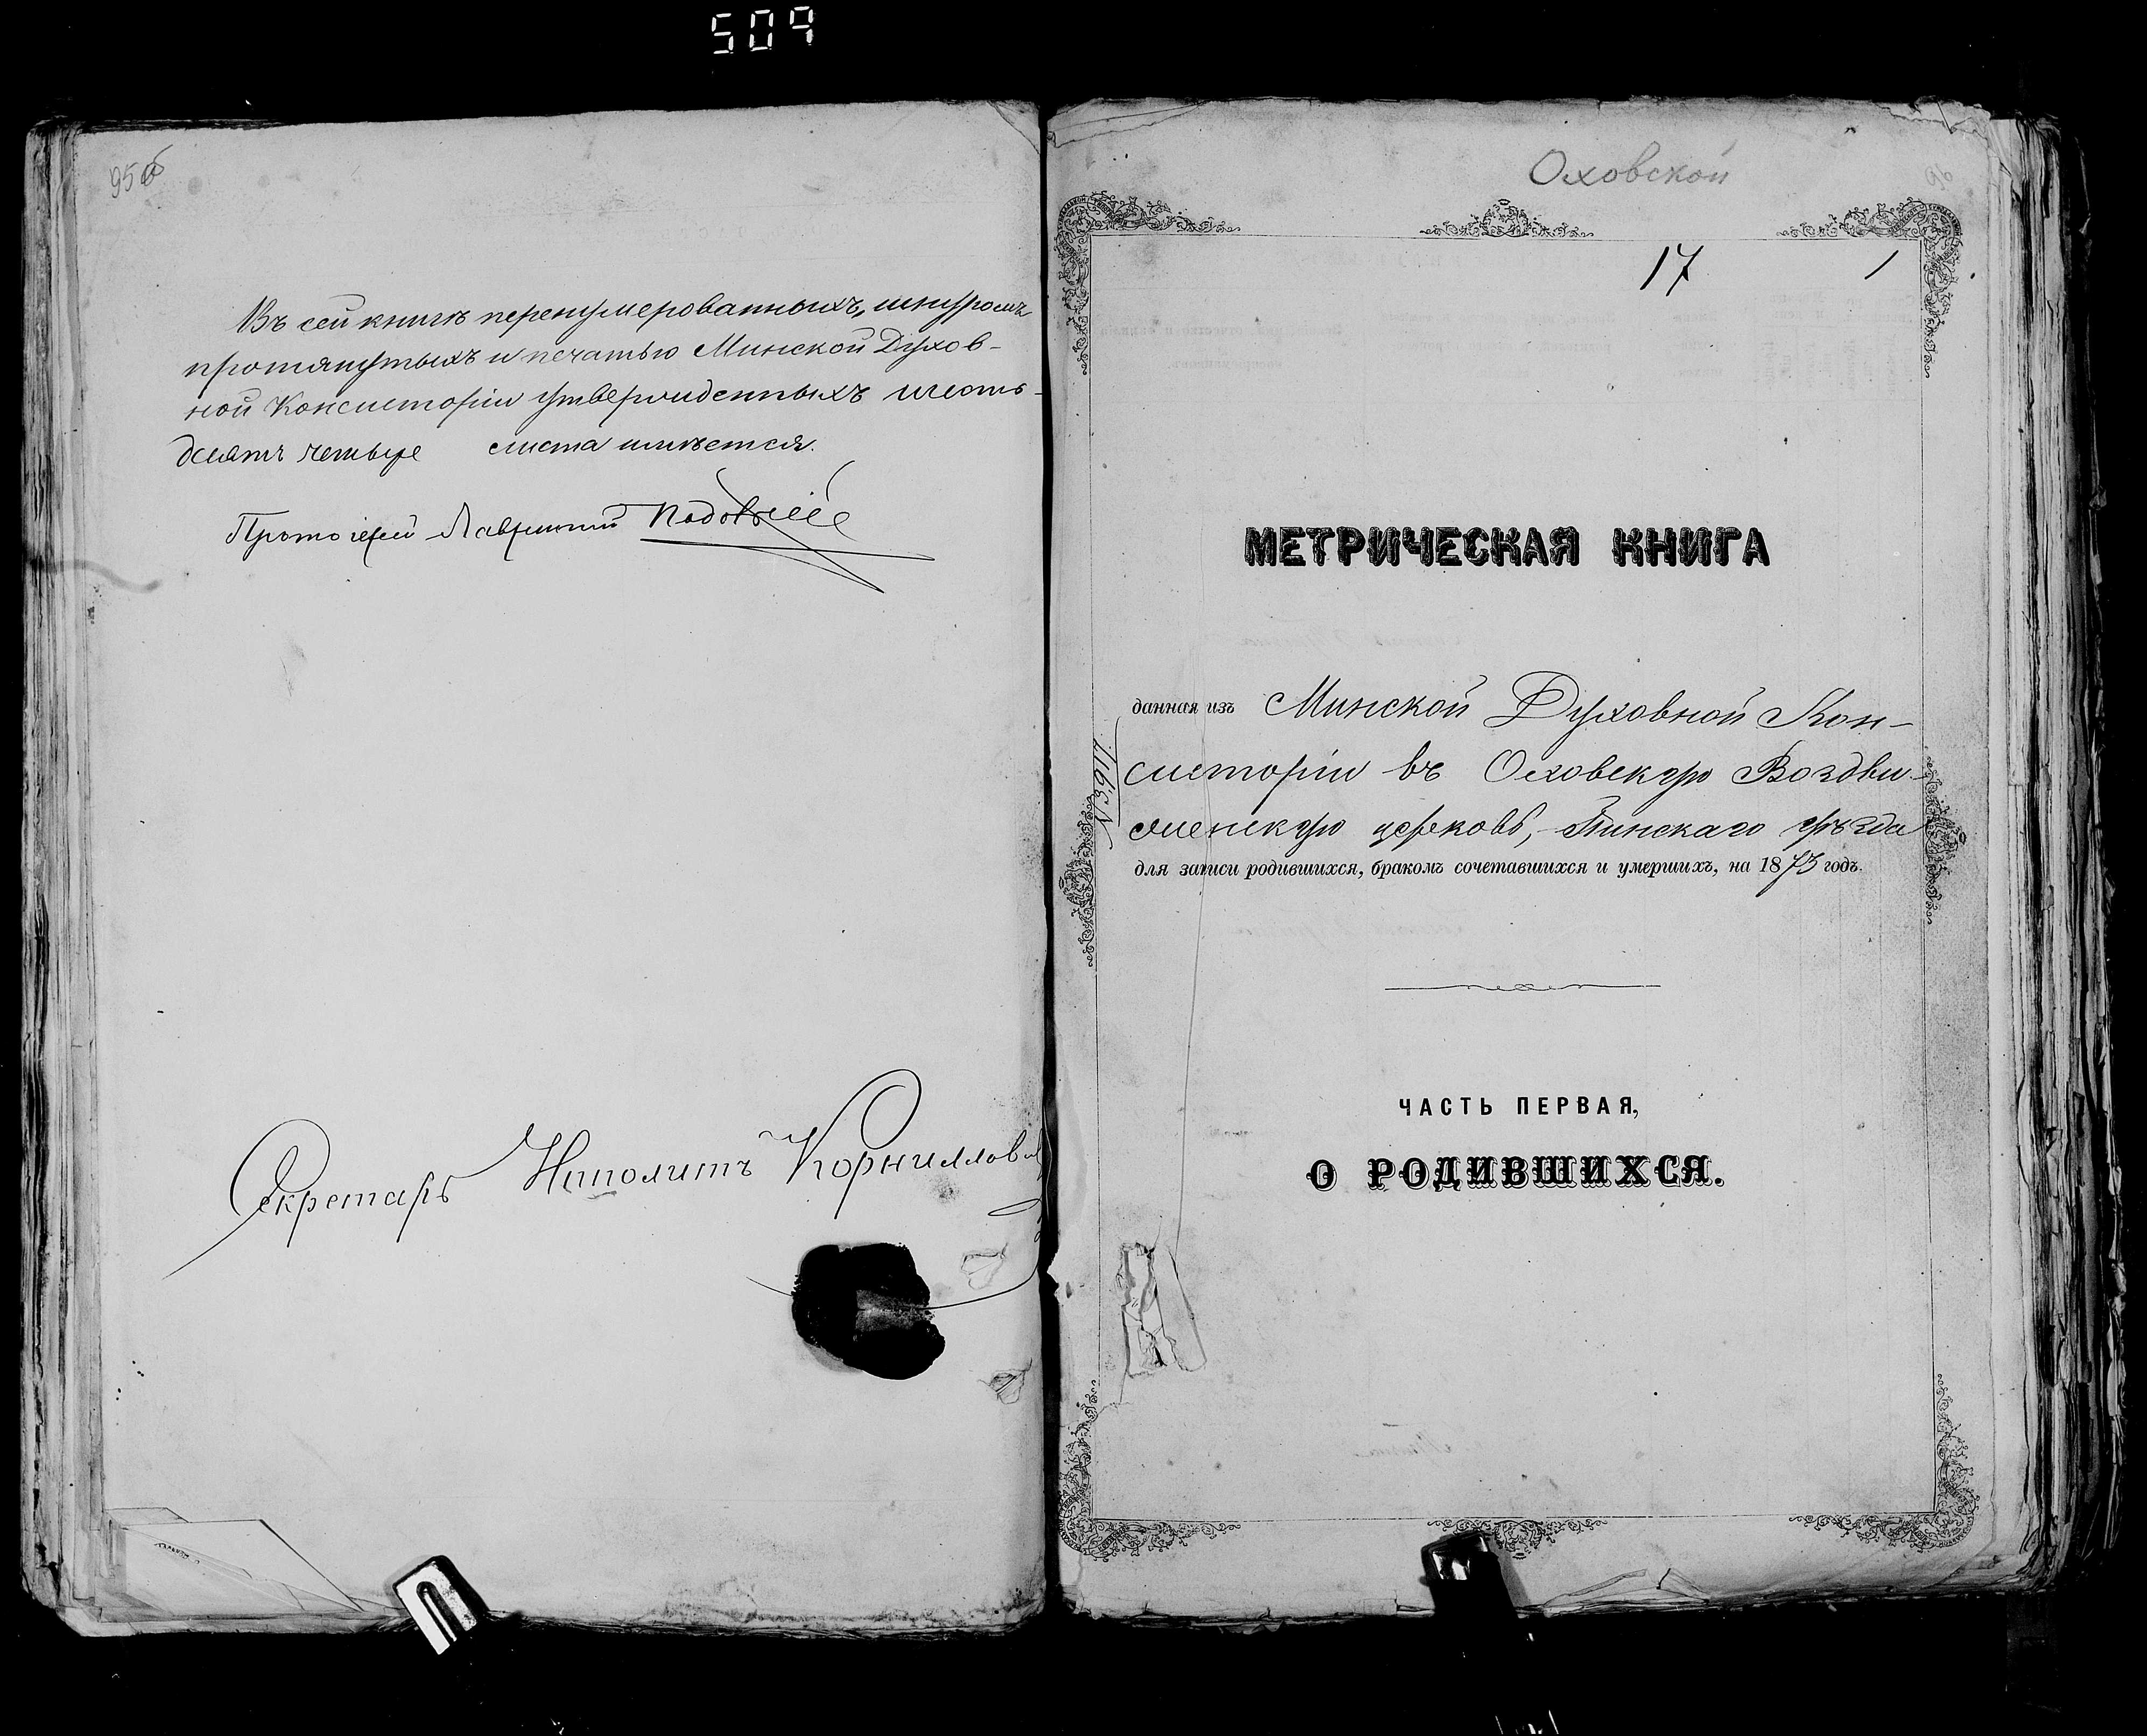 509
95об
Въ сей книгѣ перенумерованныхъ, шнуромъ
протянутыхъ и печатью Минской Духов-
ной Консисторіи утвержденныхъ шесть-
десятъ четыре листа имѣется.
Протоіерей Лаврентій
Секретарь Ипполитъ Корниллов
Оховской
96
17 1
МЕТРИЧЕСКАЯ КНИГА
данная изъ Минской Духовной Кон-
систоріи въ Оховскую Воздви-
женскую церковь, Пинскаго уѣзда
№3,917.
для записи родившихся, бракомъ сочетавшихся и умершихъ, на 1873 годъ.
ЧАСТЬ ПЕРВАЯ,
О РОДИВШИХСЯ.